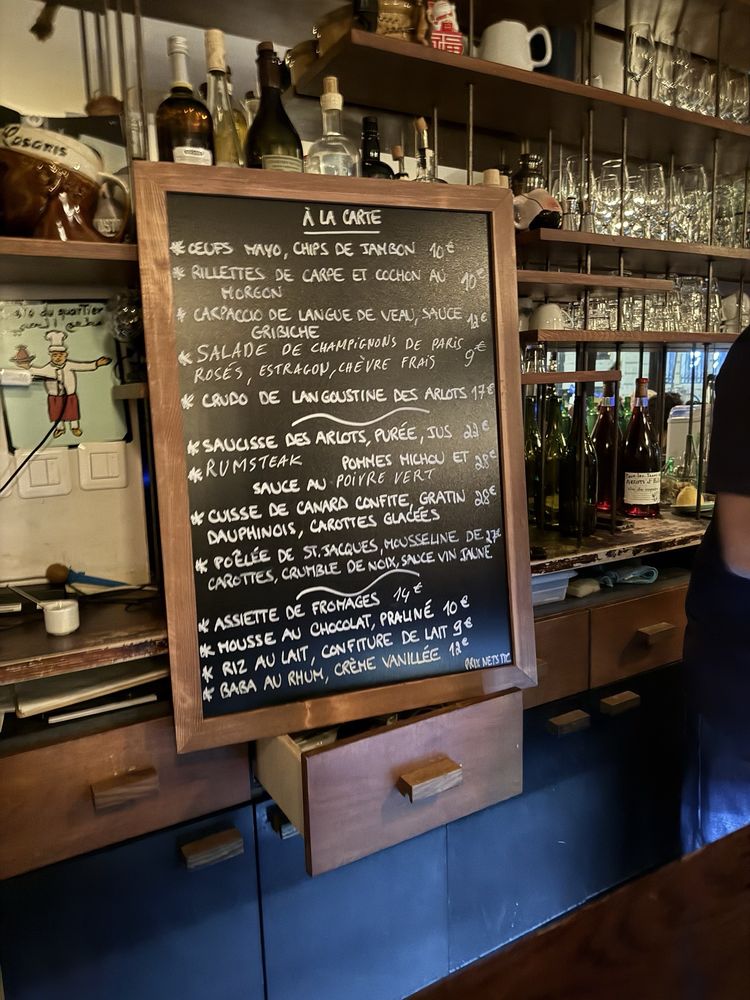 À LA CARTE
* ŒUFS MAYO, CHIPS DE JAMBON 10€
* RILLETTES DE CARPE ET COCHON AU 10€
MORGON
* CARPACCIO DE LANGUE DE VEAU, SAUCE
GRIBICHE
* SALADE DE CHAMPIGNONS DE PARIS 9€
ROSÉS, ESTRAGON, CHÈVRE FRAIS
* CRUDO DE LANGOUSTINE DES ARLOTS 17€
* SAUCISSE DES ARLOTS, PURÉE, JUS 22€
* RUMSTEAK POMMES MICHOU ET 28€
SAUCE AU POIVRE VERT
* CUISSE DE CANARD CONFITE, GRATIN 28€
DAUPHINOIS, CAROTTES GLACÉES
* POÊLÉE DE ST. JACQUES, MOUSSELINE DE 27€
CAROTTES, CRUMBLE DE NOIX, SAUCE VIN JAUNE
* ASSIETTE DE FROMAGES 14€
* MOUSSE AU CHOCOLAT, PRALINÉ 10€
* RIZ AU LAIT, CONFITURE DE LAIT 9€
* BABA AU RHUM, CRÈME VANILLÉE 12€
PRIX NETS TTC
du quartier